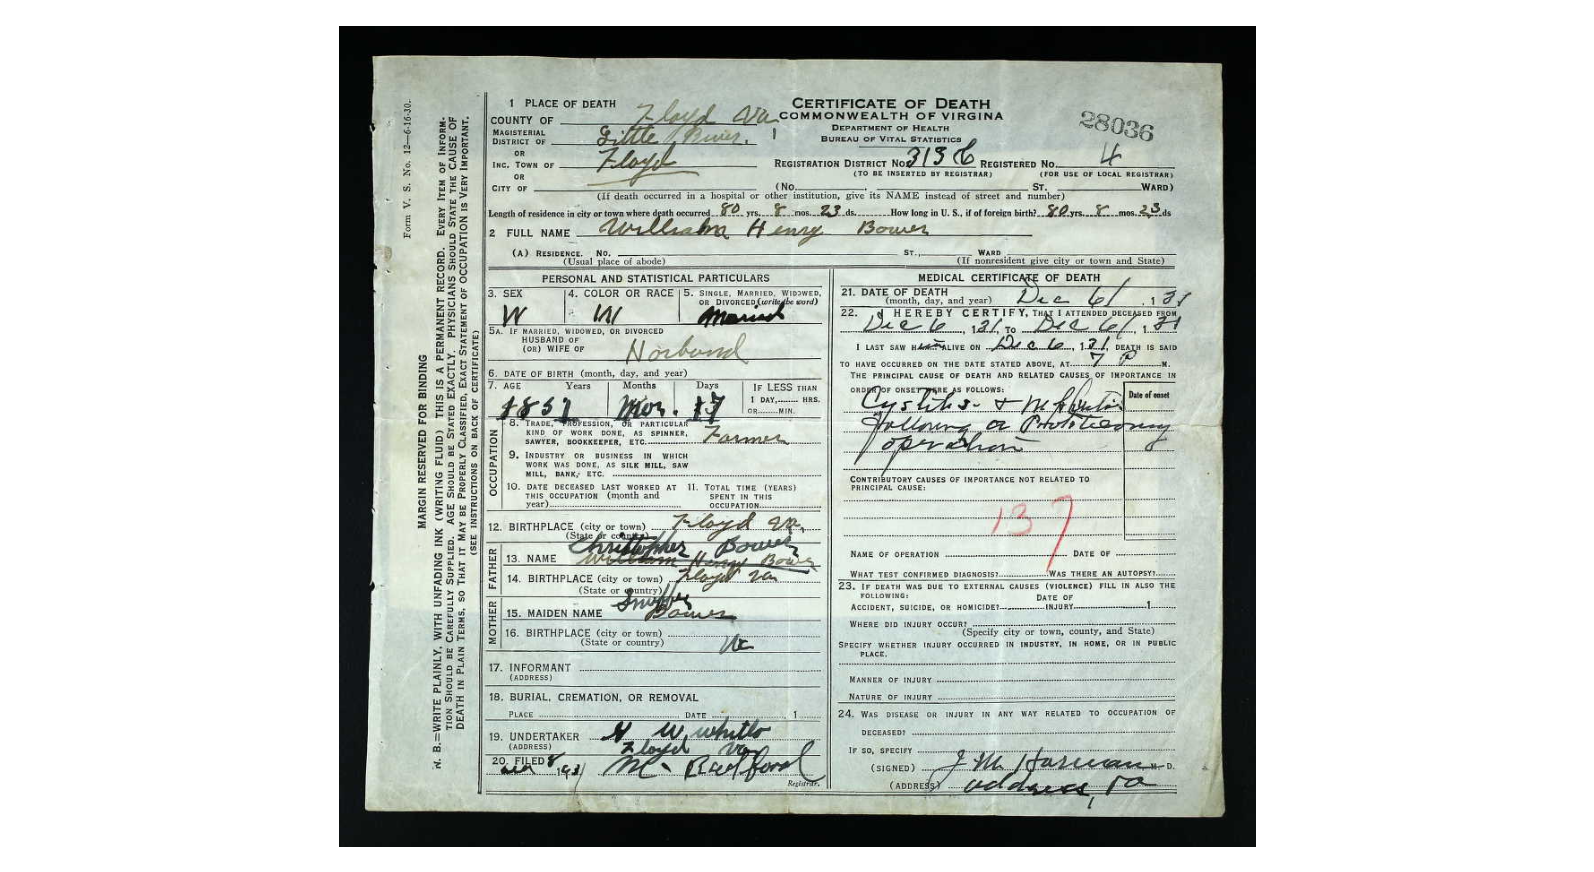 Form V. S. No. 12—6-16-30.
MARGIN RESERVED FOR BINDING
N. B.—WRITE PLAINLY, WITH UNFADING INK (WRITING FLUID) THIS IS A PERMANENT RECORD. EVERY ITEM OF INFORM-
TION SHOULD BE CAREFULLY SUPPLIED. AGE SHOULD BE STATED EXACTLY. PHYSICIANS SHOULD STATE THE CAUSE OF
DEATH IN PLAIN TERMS, SO THAT IT MAY BE PROPERLY CLASSIFIED, EXACT STATEMENT OF OCCUPATION IS VERY IMPORTANT.
(SEE INSTRUCTIONS ON BACK OF CERTIFICATE)
CERTIFICATE OF DEATH
COMMONWEALTH OF VIRGINIA
DEPARTMENT OF HEALTH
BUREAU OF VITAL STATISTICS
28036
1 PLACE OF DEATH
COUNTY OF Floyd Va
MAGISTERIAL
DISTRICT OF Little River.
OR
INC. TOWN OF Floyd
OR
CITY OF
REGISTRATION DISTRICT NO. 313 REGISTERED NO. 4
(TO BE INSERTED BY REGISTRAR) (FOR USE OF LOCAL REGISTRAR)
(NO. ST. WARD)
(If death occurred in a hospital or other institution, give its NAME instead of street and number)
Length of residence in city or town where death occurred 80 yrs. 8 mos. 23 ds. How long in U. S., if of foreign birth? 80 yrs. 8 mos. 23 ds
2 FULL NAME William Henry Bower
(A) RESIDENCE. NO. ST., WARD
(Usual place of abode) (If nonresident give city or town and State)
PERSONAL AND STATISTICAL PARTICULARS
3. SEX 4. COLOR OR RACE 5. SINGLE, MARRIED, WIDOWED,
OR DIVORCED (write the word)
W Married
5A. IF MARRIED, WIDOWED, OR DIVORCED
HUSBAND OF
(OR) WIFE OF Horband
6. DATE OF BIRTH (month, day, and year)
7. AGE Years Months Days IF LESS THAN
1 DAY, HRS.
OR MIN.
1851 Mar. 17
OCCUPATION
8. TRADE, PROFESSION, OR PARTICULAR
KIND OF WORK DONE, AS SPINNER,
SAWYER, BOOKKEEPER, ETC. Farmer
9. INDUSTRY OR BUSINESS IN WHICH
WORK WAS DONE, AS SILK MILL, SAW
MILL, BANK, ETC.
10. DATE DECEASED LAST WORKED AT
THIS OCCUPATION (month and
year)
11. TOTAL TIME (YEARS)
SPENT IN THIS
OCCUPATION
12. BIRTHPLACE (city or town) Floyd Va.
(State or country)
FATHER
Christopher Bower
13. NAME William Henry Bower
14. BIRTHPLACE (city or town) Floyd Va
(State or country)
MOTHER
15. MAIDEN NAME Bower
16. BIRTHPLACE (city or town)
(State or country) Va
17. INFORMANT
(ADDRESS)
18. BURIAL, CREMATION, OR REMOVAL
PLACE DATE 1
19. UNDERTAKER
(ADDRESS) Floyd Va
20. FILED 8, 1931
Registrar.
MEDICAL CERTIFICATE OF DEATH
21. DATE OF DEATH
(month, day, and year) Dec 6/ , 1 31
22. I HEREBY CERTIFY, THAT I ATTENDED DECEASED FROM
Dec 6 , 1 31, TO Dec 6/ , 1 31
I LAST SAW H ALIVE ON Dec 6 , 1 31, DEATH IS SAID
TO HAVE OCCURRED ON THE DATE STATED ABOVE, AT 7 P M.
THE PRINCIPAL CAUSE OF DEATH AND RELATED CAUSES OF IMPORTANCE IN
ORDER OF ONSET WERE AS FOLLOWS:
Date of onset
Cystitis &
following a
operation
CONTRIBUTORY CAUSES OF IMPORTANCE NOT RELATED TO
PRINCIPAL CAUSE:
137
NAME OF OPERATION DATE OF
WHAT TEST CONFIRMED DIAGNOSIS? WAS THERE AN AUTOPSY?
23. IF DEATH WAS DUE TO EXTERNAL CAUSES (VIOLENCE) FILL IN ALSO THE
FOLLOWING:
DATE OF
ACCIDENT, SUICIDE, OR HOMICIDE? INJURY 1
WHERE DID INJURY OCCUR?
(Specify city or town, county, and State)
SPECIFY WHETHER INJURY OCCURRED IN INDUSTRY, IN HOME, OR IN PUBLIC
PLACE.
MANNER OF INJURY
NATURE OF INJURY
24. WAS DISEASE OR INJURY IN ANY WAY RELATED TO OCCUPATION OF
DECEASED?
IF SO, SPECIFY
(SIGNED) J M Harman M. D.
(ADDRESS) address, Va